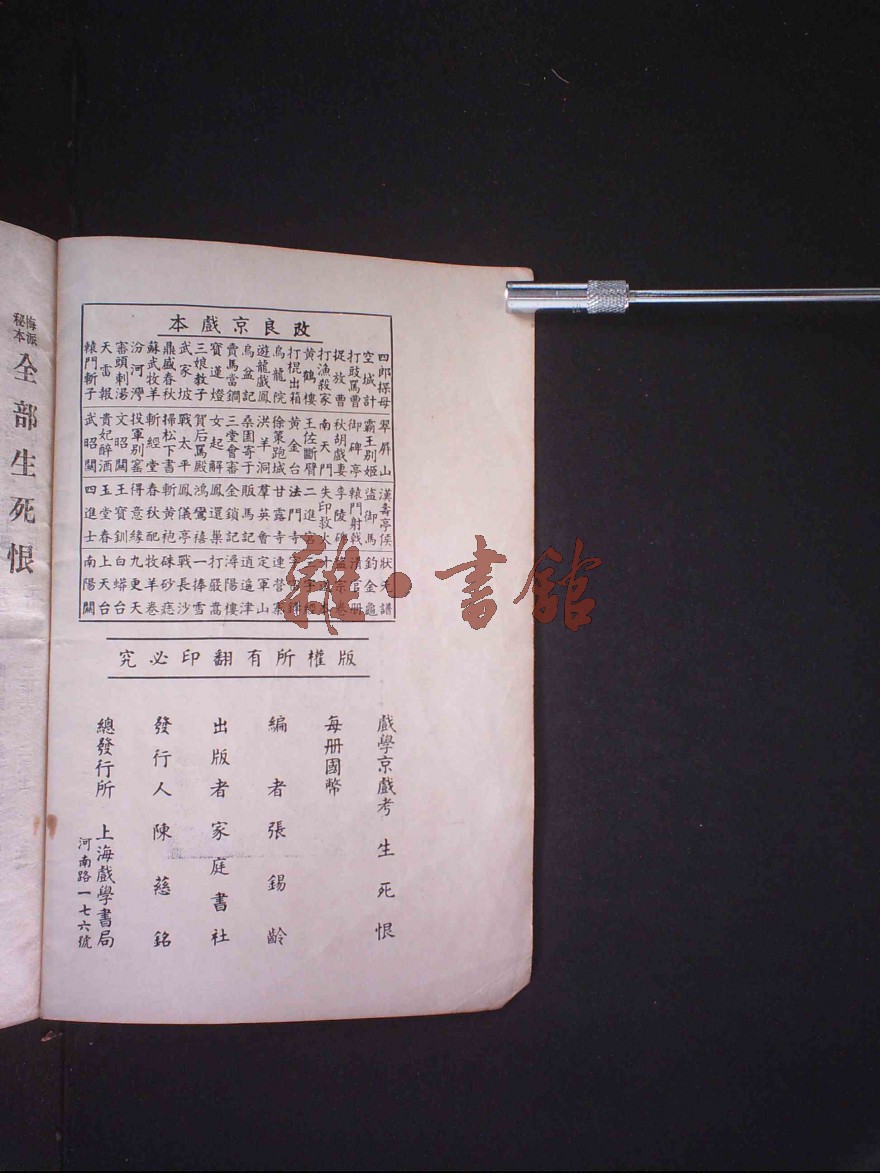 改良京戲本
四郎探母
空城計
打鼓罵曹
捉放曹
打漁殺家
黃鶴樓
打棍出箱
烏龍院
遊龍戲鳳
烏盆記
賣馬當鐧
寶蓮燈
三娘教子
武家坡
鼎盛春秋
蘇武牧羊
汾河灣
審頭刺湯
天雷報
轅門斬子
翠屏山
霸王別姬
御碑亭
秋胡戲妻
南天門
王佐斷臂
黃金台
徐策跑城
洪羊洞
桑園寄子
三堂會審
女起解
賀后罵殿
戰太平
掃松下書
斬經堂
投軍別窰
文昭關
貴妃醉酒
武昭關
漢壽亭侯
盜御馬
轅門射戟
李陵碑
失印救火
二進宮
法門寺
甘露寺
羣英會
販馬記
金鎖記
鳳還巢
鴻鸞禧
鳳儀亭
斬黃袍
春秋配
得意緣
王寶釧
玉堂春
四進士
狀元譜
釣金龜
清官冊
盜宗卷
十道本
三字經
宇宙鋒
連營寨
定軍山
逍遙津
潯陽樓
打嚴嵩
一捧雪
戰長沙
硃砂痣
牧羊卷
九更天
白蟒台
上天台
南陽關
版權所有翻印必究
戲學京戲考 生死恨
每冊國幣
編者張錫齡
出版者家庭書社
發行人陳慈銘
總發行所 上海戲學書局
河南路一七六號
梅派秘本 全部生死恨
雜·書館